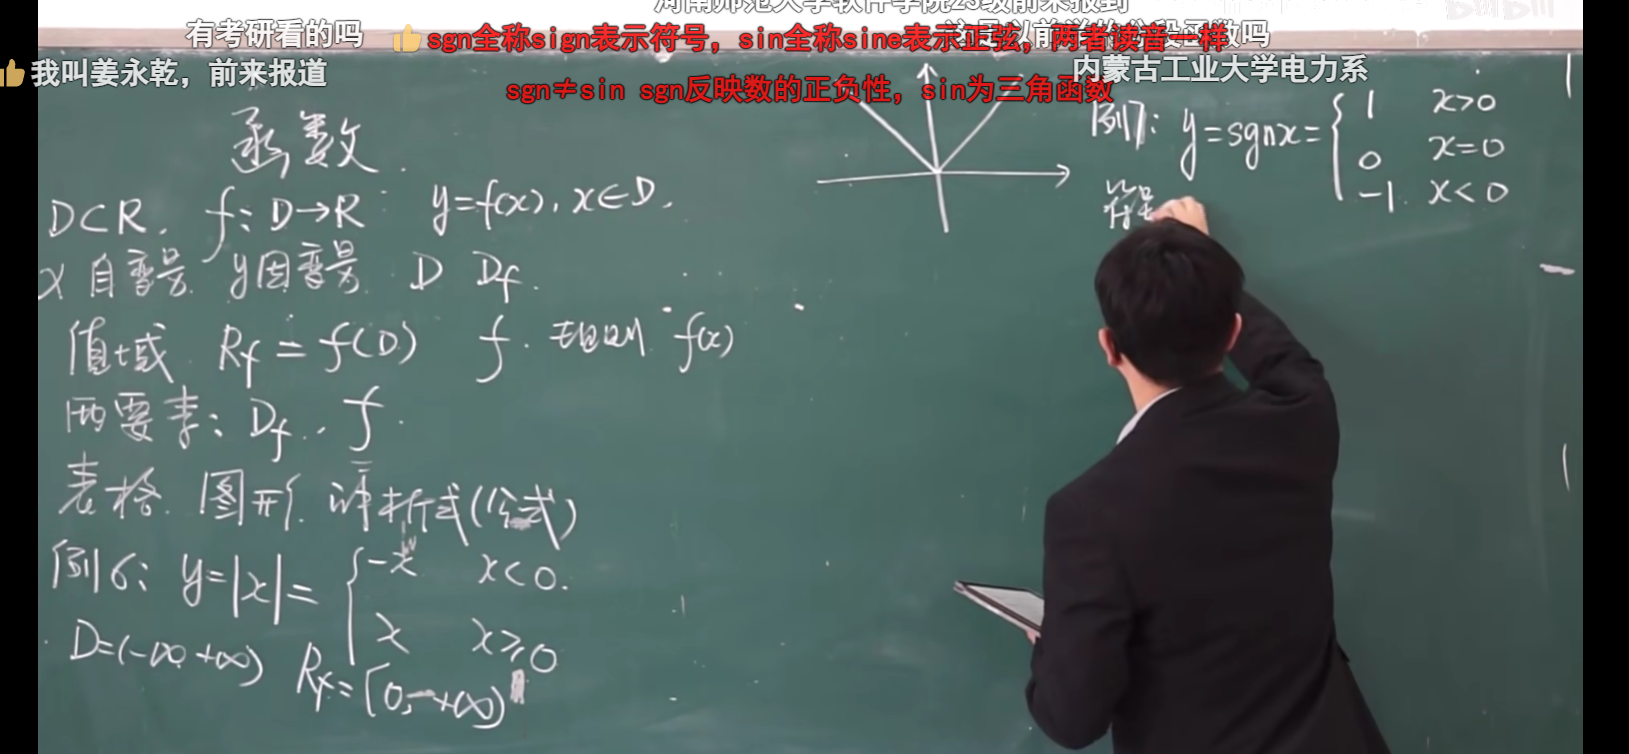 有考研看的吗
sgn全称sign表示符号，sin全称sine表示正弦，两者读音一样
我叫姜永乾，前来报道
内蒙古工业大学电力系
sgn≠sin sgn反映数的正负性，sin为三角函数
函数
D⊂R. f: D→R y=f(x), x∈D.
x 自变量 y因变量 D Df.
值域 Rf = f(D) f. f(x)
两要素: Df, f.
表格 图形 解析式(公式)
例6: y=|x|= { -x x<0.
x x≥0
D=(-∞ +∞) Rf=[0, +∞)
例7: y=sgnx= { 1 x>0
0 x=0
-1. x<0
符号